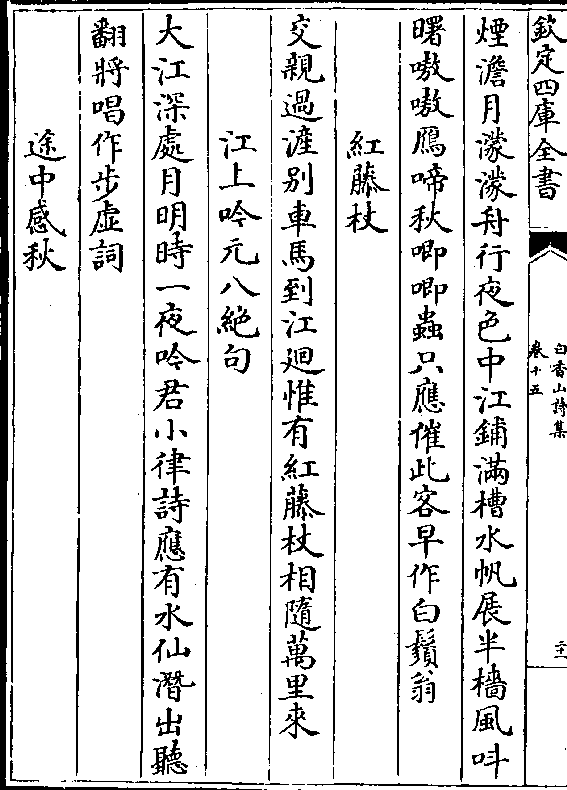 欽定四庫全書
白香山詩集
卷十五
煙澹月濛濛舟行夜色中江鋪滿槽水帆展半檣風叫
曙嗷嗷鴈啼秋唧唧蟲只應催此客早作白鬚翁
紅藤杖
交親過滻別車馬到江廻惟有紅藤杖相隨萬里來
江上吟元八絶句
大江深處月明時一夜吟君小律詩應有水仙潛出聽
翻將唱作步虛詞
途中感秋